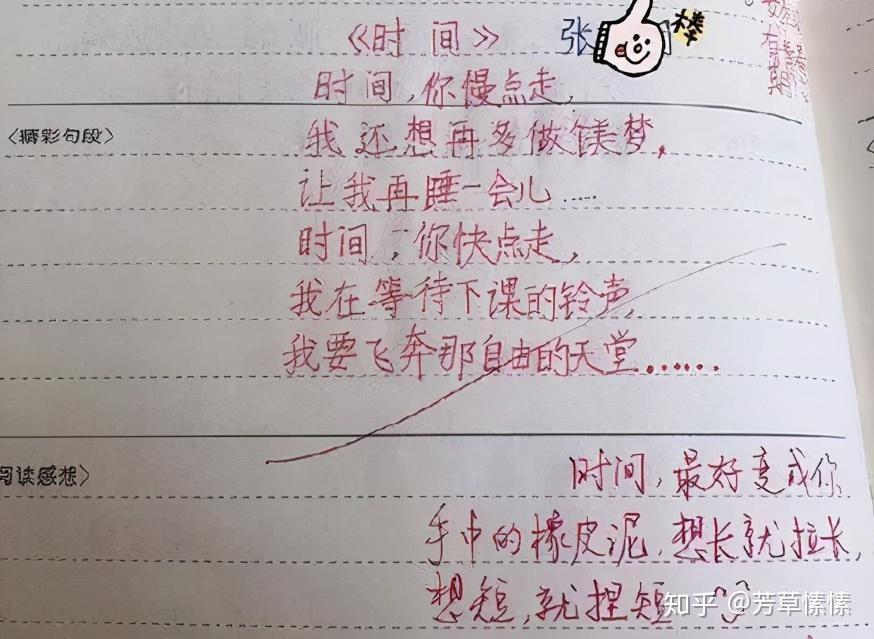 《时间》 张 楼
时间，你慢点走，
<精彩句段>
我还想再多做个美梦，
让我再睡一会儿……
时间，你快点走，
我在等待下课的铃声，
我要飞奔那自由的天堂……
阅读感想>
时间，最好变成你
手中的橡皮泥，想长就拉长，
想短，就捏短
知乎 @芳草愫愫